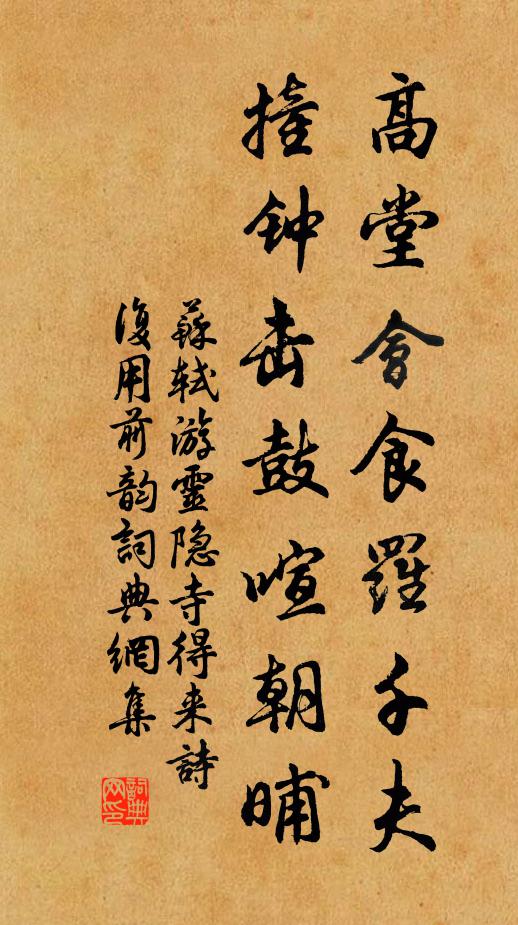 高堂會食羅千夫
撞钟击鼓喧朝晡
蘇軾游靈隐寺得来詩
復用前韵詞典網集
詞典
网印